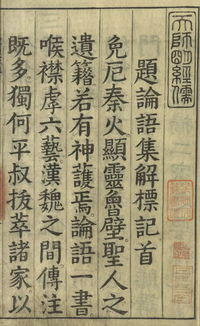 天師明經儒
題論語集解標記首
免厄秦火顯靈魯壁聖人之
遺籍若有神護焉論語一書
喉襟虖六藝漢魏之間傳注
既多獨何平叔拔萃諸家以